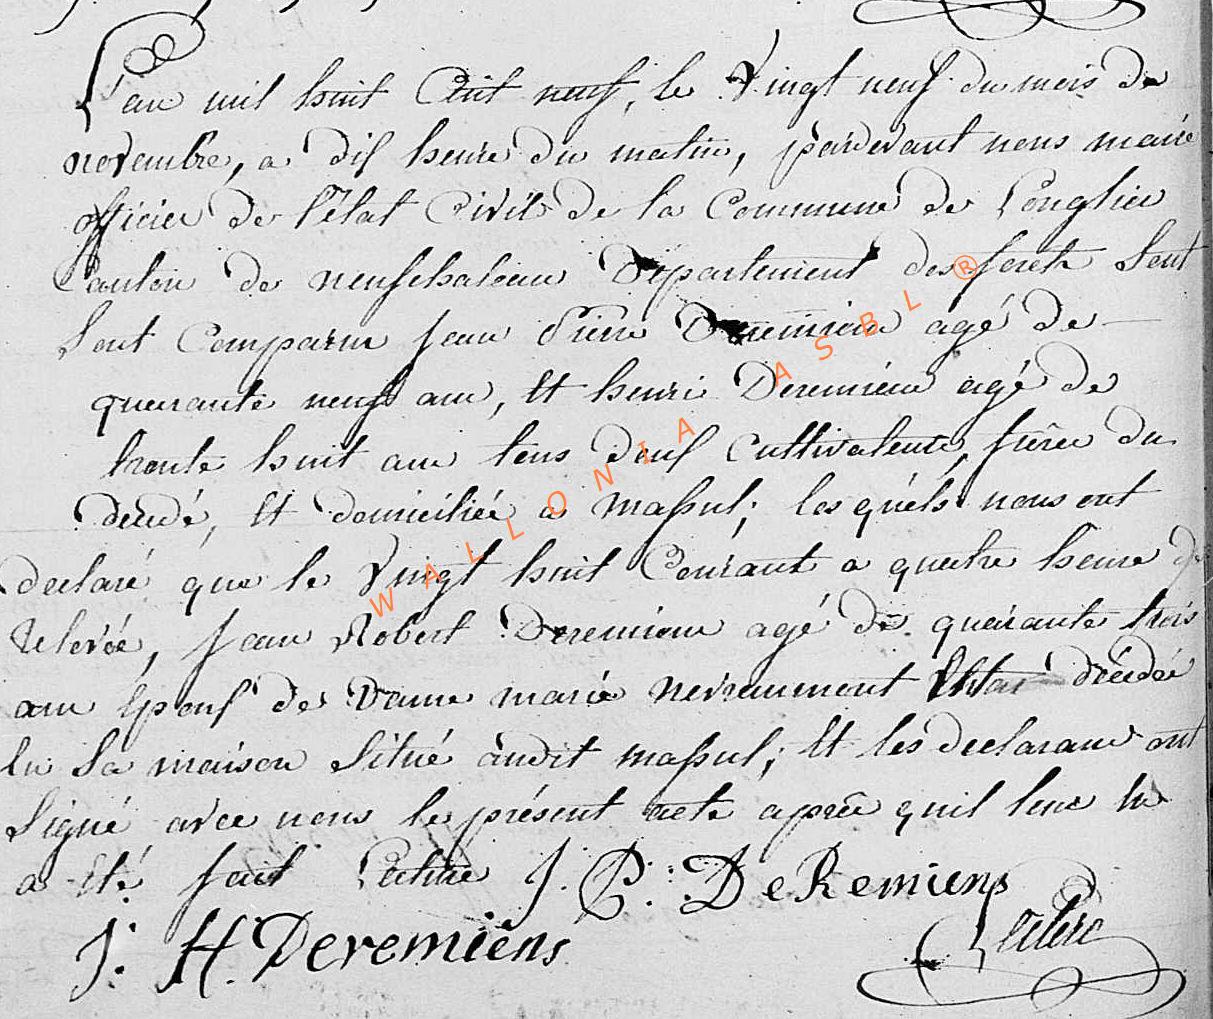 L'an mil huit Cent neuf, le Vingt neuf du mois de
novembre, a dix heure du matin, pardevant nous maire
officier de l'état Civil de la Commune de Longlier
Canton de neufchateau Département des forêts Sont
Sont Comparu Jean Pierre Deremiens agé de
quarante neuf ans, Et henri Deremiens agé de
trente huit ans tous deux Cultivateurs, frères du
décédé, Et domiciliés a massul; les quels nous ont
declaré que le Vingt huit Courant a quatre heure de
relevée, Jean Robert Deremiens agé de quarante trois
ans Epoux de Dame marie nevraumont décédé
En Sa maison Situé audit massul; Et les declarans ont
Signé avec nous le présent acte après qu'il leur en
a été fait Lecture J. P. DeRemiens
J. H. Deremiëns Leclerc
WALLONIA ASBL ®